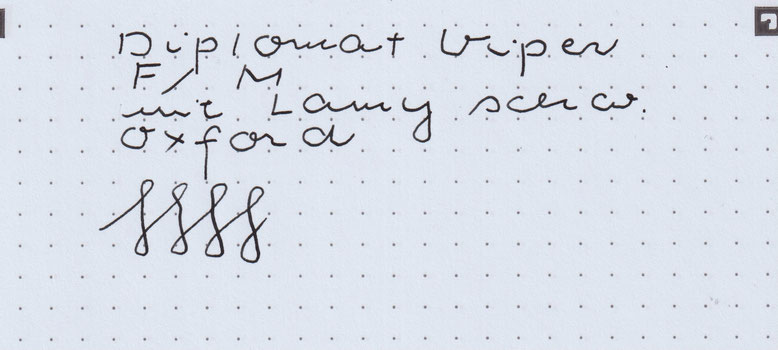 Diplomat Viper
F / M
mit Lamy schw.
Oxford